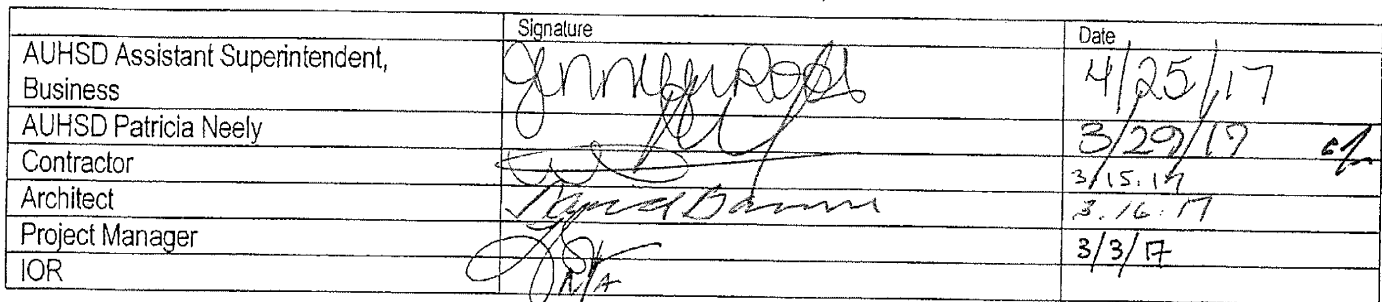 Signature Date
AUHSD Assistant Superintendent, Business Jennifer Root 4/25/17
AUHSD Patricia Neely 3/29/17
Contractor 3/15.17
Architect 3.16.17
Project Manager 3/3/17
IOR N/A